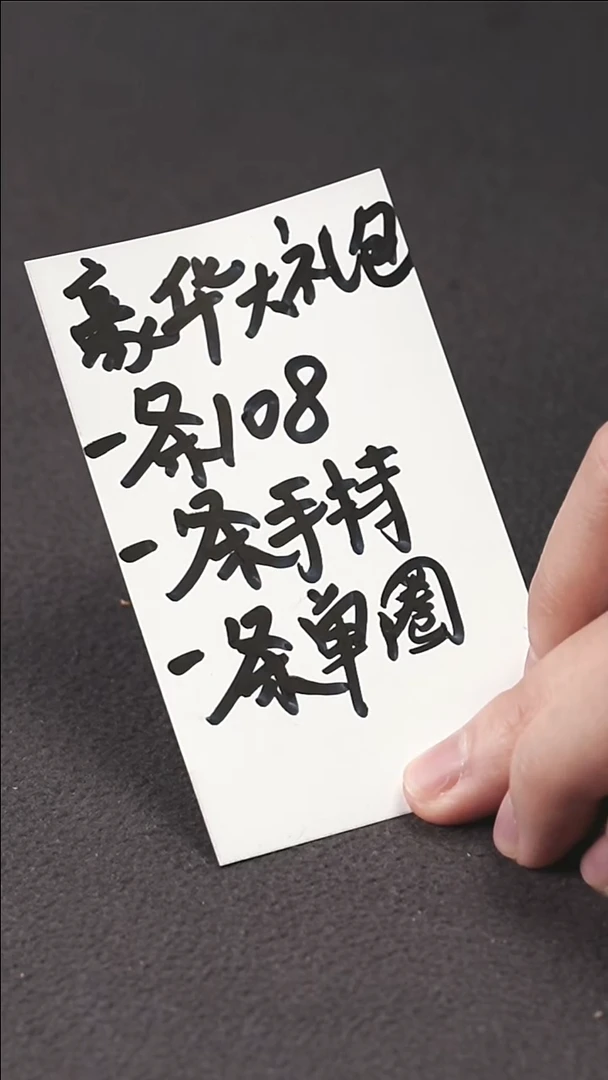 豪华大礼包
一条108
一条手持
一条单圈